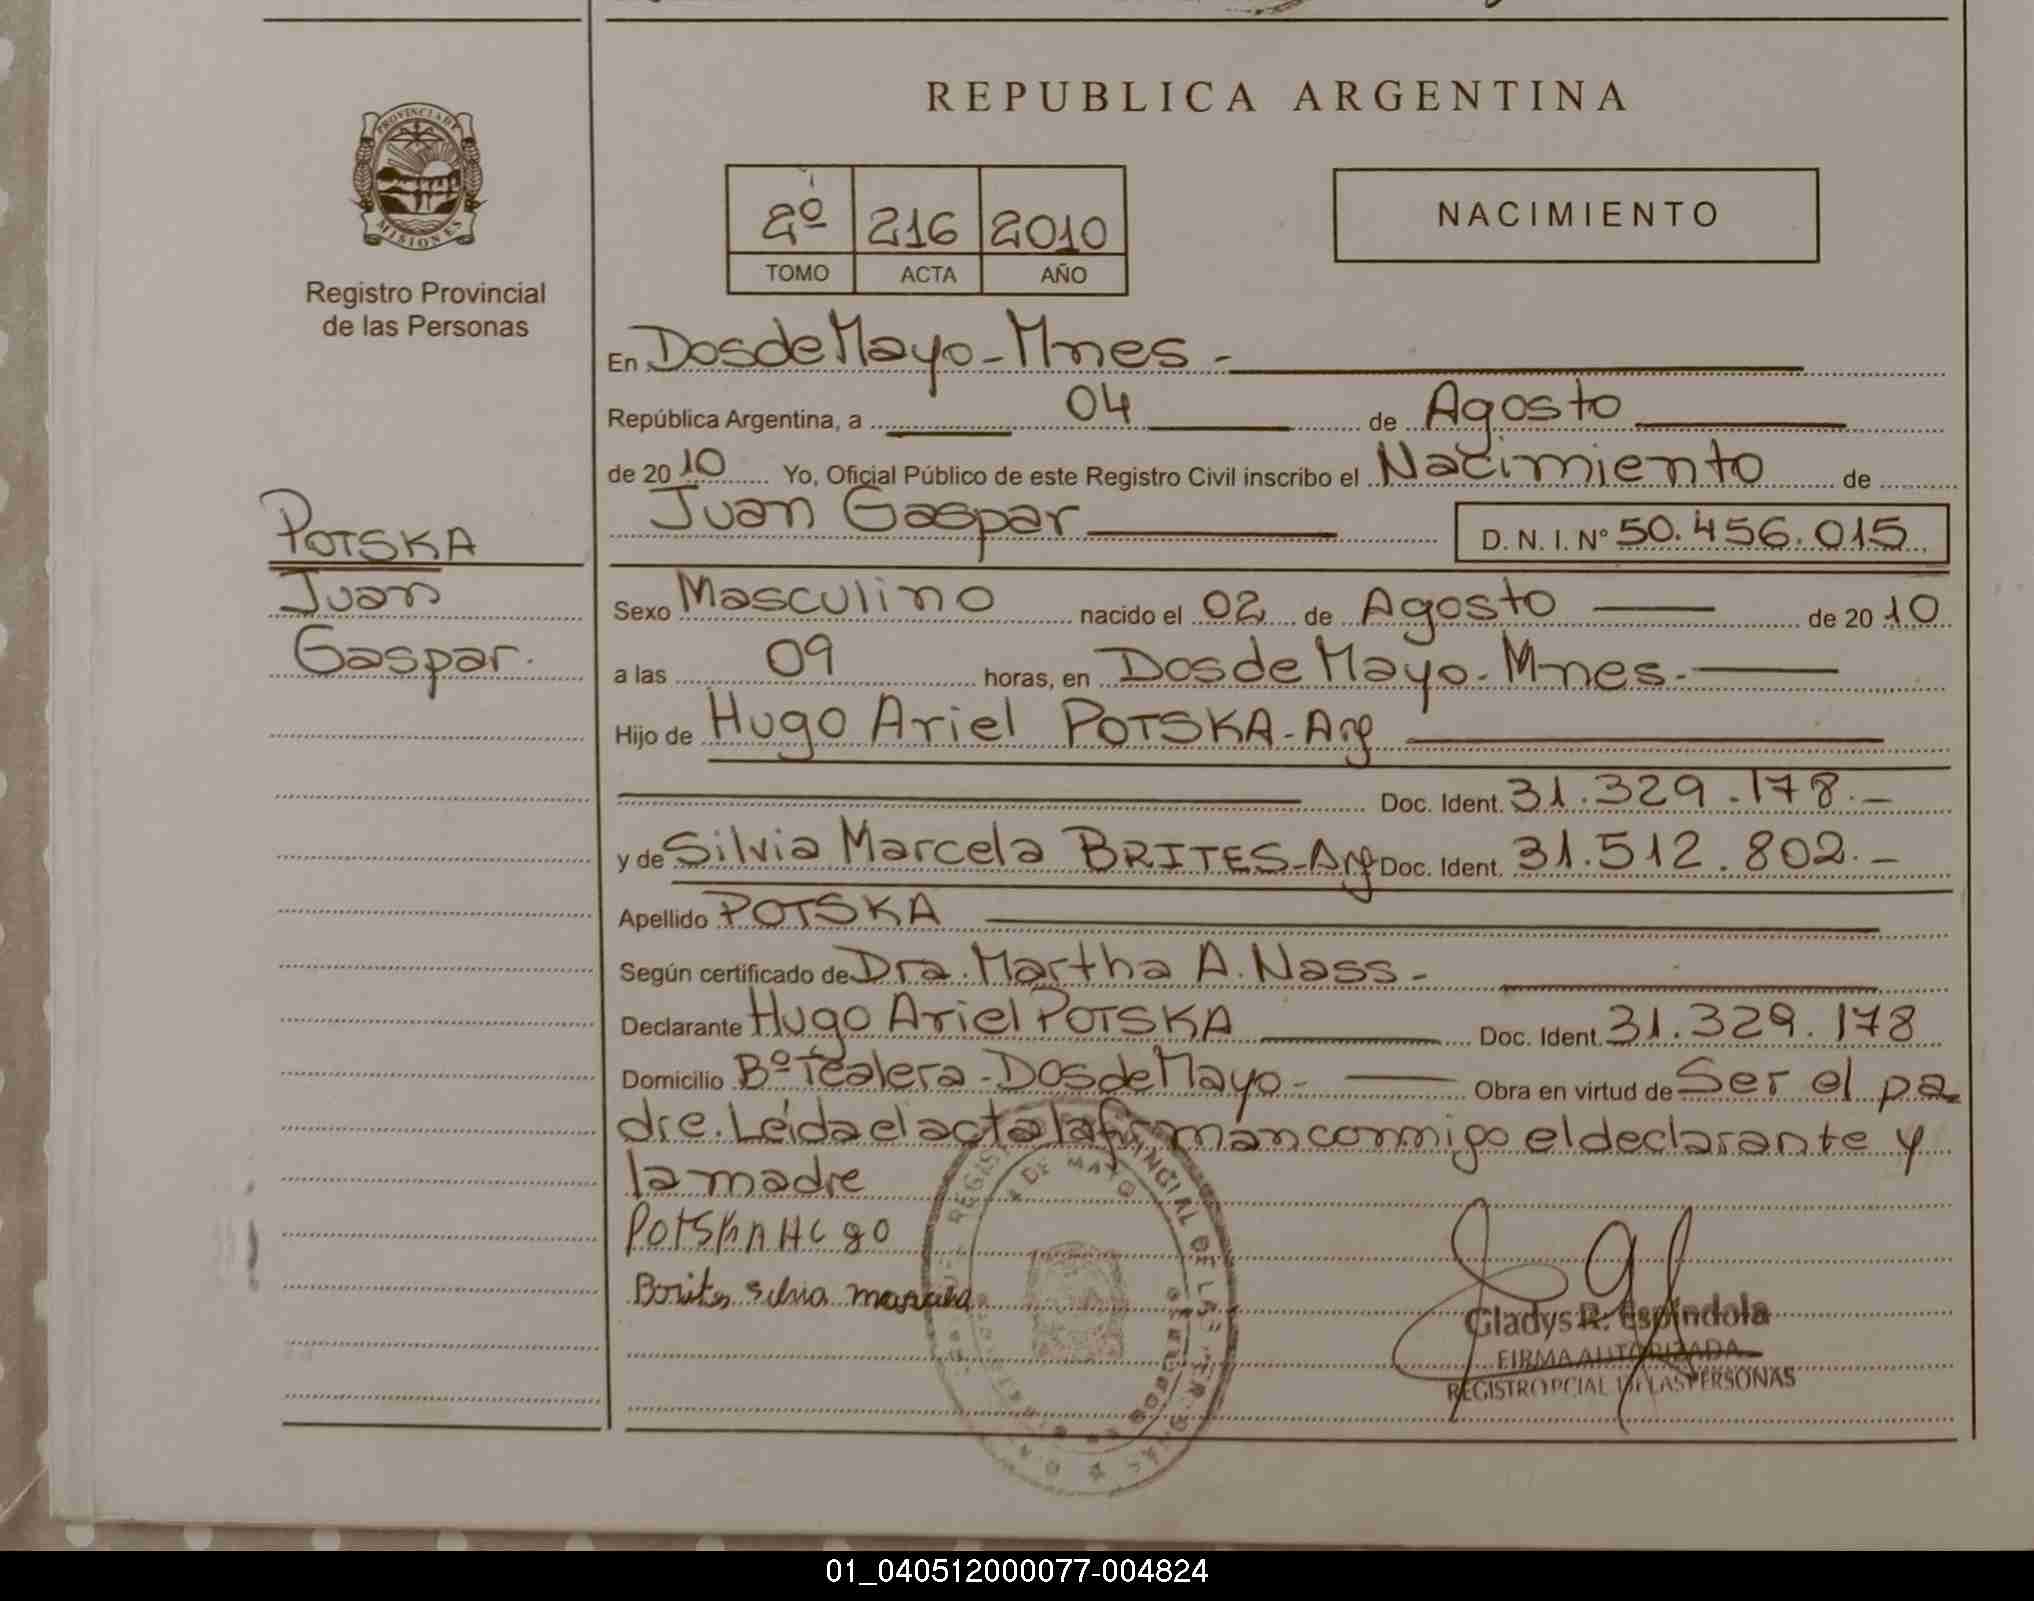 REPUBLICA ARGENTINA
PROVINCIA DE
MISIONES
Registro Provincial
de las Personas
2º 216 2010
TOMO ACTA AÑO
NACIMIENTO
En Dos de Mayo - Mnes -
República Argentina, a 04 de Agosto
de 2010 Yo, Oficial Público de este Registro Civil inscribo el Nacimiento de
Juan Gaspar D. N. I. Nº 50.456.015
POTSKA
Juan
Gaspar.
Sexo Masculino nacido el 02 de Agosto de 2010
a las 09 horas, en Dos de Mayo - Mnes. -
Hijo de Hugo Ariel POTSKA - Arg
Doc. Ident. 31.329.178. -
y de Silvia Marcela BRITES - Arg Doc. Ident. 31.512.802. -
Apellido POTSKA
Según certificado de Dra. Martha A. Nass -
Declarante Hugo Ariel POTSKA Doc. Ident. 31.329.178
Domicilio Bº Tealera - Dos de Mayo - Obra en virtud de Ser el pa
dre. Leída el acta la firman conmigo el declarante y
la madre
POTSKA HUgo
Brites Silvia marcela
DE MAYO
Gladys R. Espíndola
FIRMA AUTORIZADA
REGISTRO PCIAL DE LAS PERSONAS
01_040512000077-004824